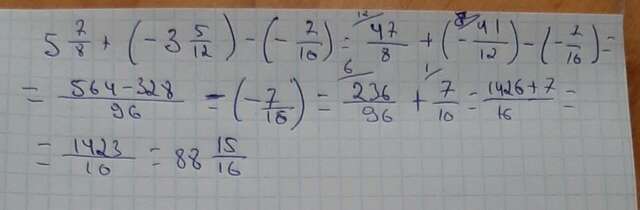 5 7/8 + (-3 5/12) - (-7/16) = 12/ 47/8 + (-8/ 41/12) - (-7/16) =
= 564-328/96 - (-7/16) = 6/ 236/96 + 1/ 7/16 = 1426+7/16 =
= 1423/16 = 88 15/16